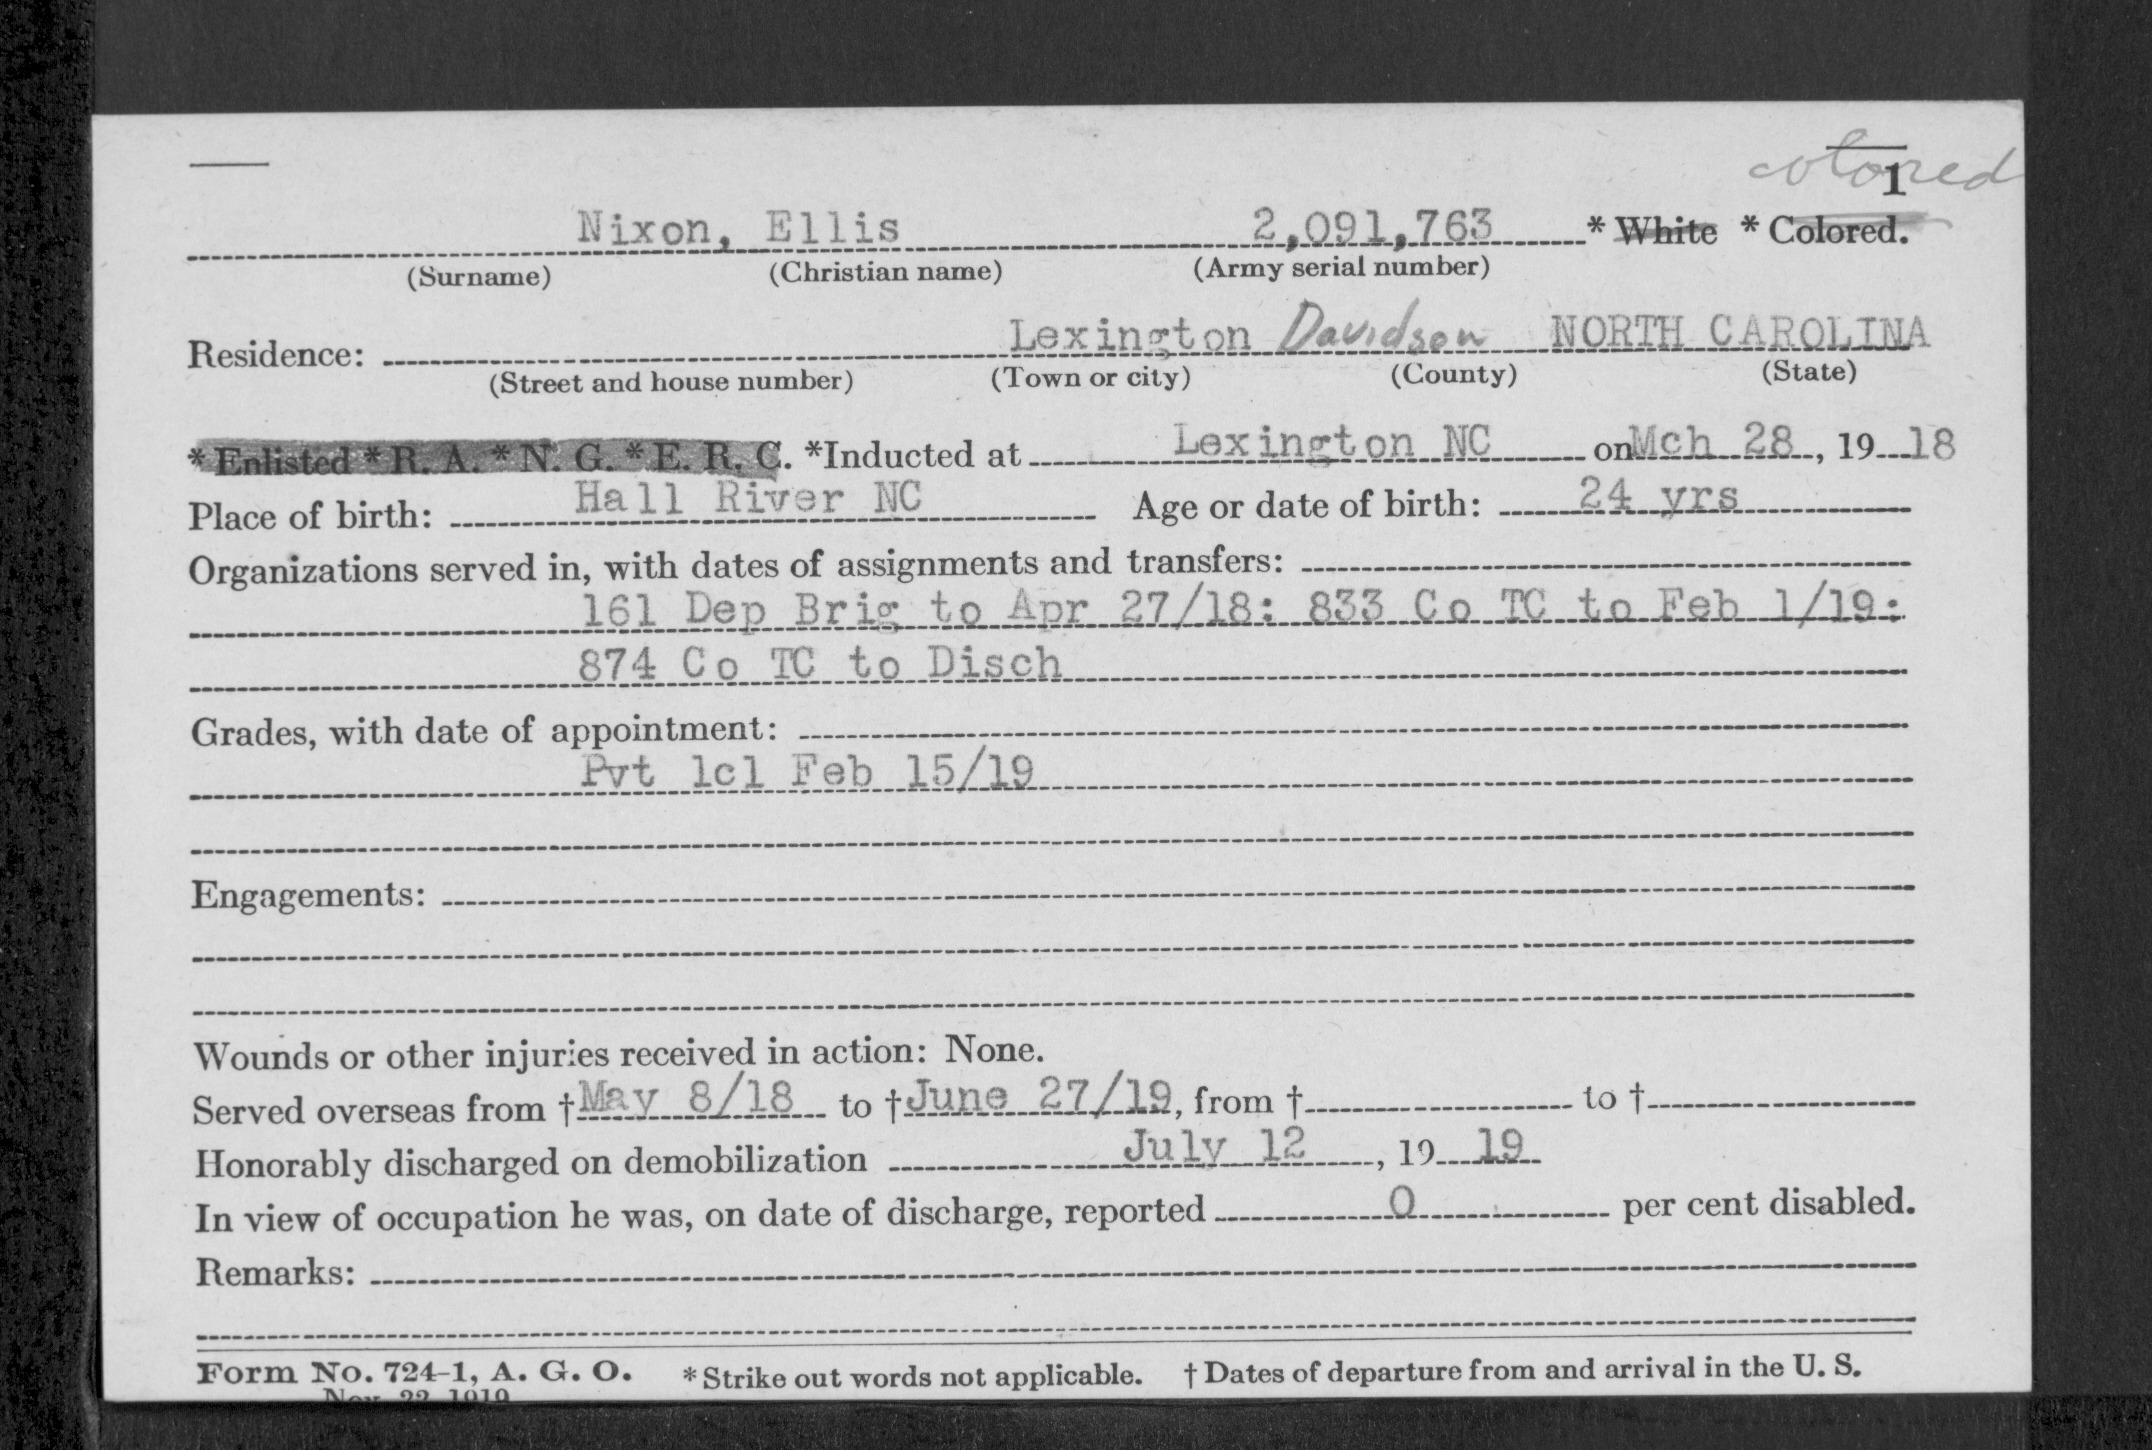 colored
1
Nixon, Ellis 2,091,763 * White * Colored.
(Surname) (Christian name) (Army serial number)
Residence: Lexington Davidson NORTH CAROLINA
(Street and house number) (Town or city) (County) (State)
* Enlisted * R. A. * N. G. * E. R. C. *Inducted at Lexington NC on Mch 28, 19 18
Place of birth: Hall River NC Age or date of birth: 24 yrs
Organizations served in, with dates of assignments and transfers:
161 Dep Brig to Apr 27/18: 833 Co TC to Feb 1/19:
874 Co TC to Disch
Grades, with date of appointment:
Pvt 1cl Feb 15/19
Engagements:
Wounds or other injuries received in action: None.
Served overseas from † May 8/18 to † June 27/19, from † to †
Honorably discharged on demobilization July 12, 19 19
In view of occupation he was, on date of discharge, reported 0 per cent disabled.
Remarks:
Form No. 724-1, A. G. O. * Strike out words not applicable. † Dates of departure from and arrival in the U. S.
Nov. 22 1919